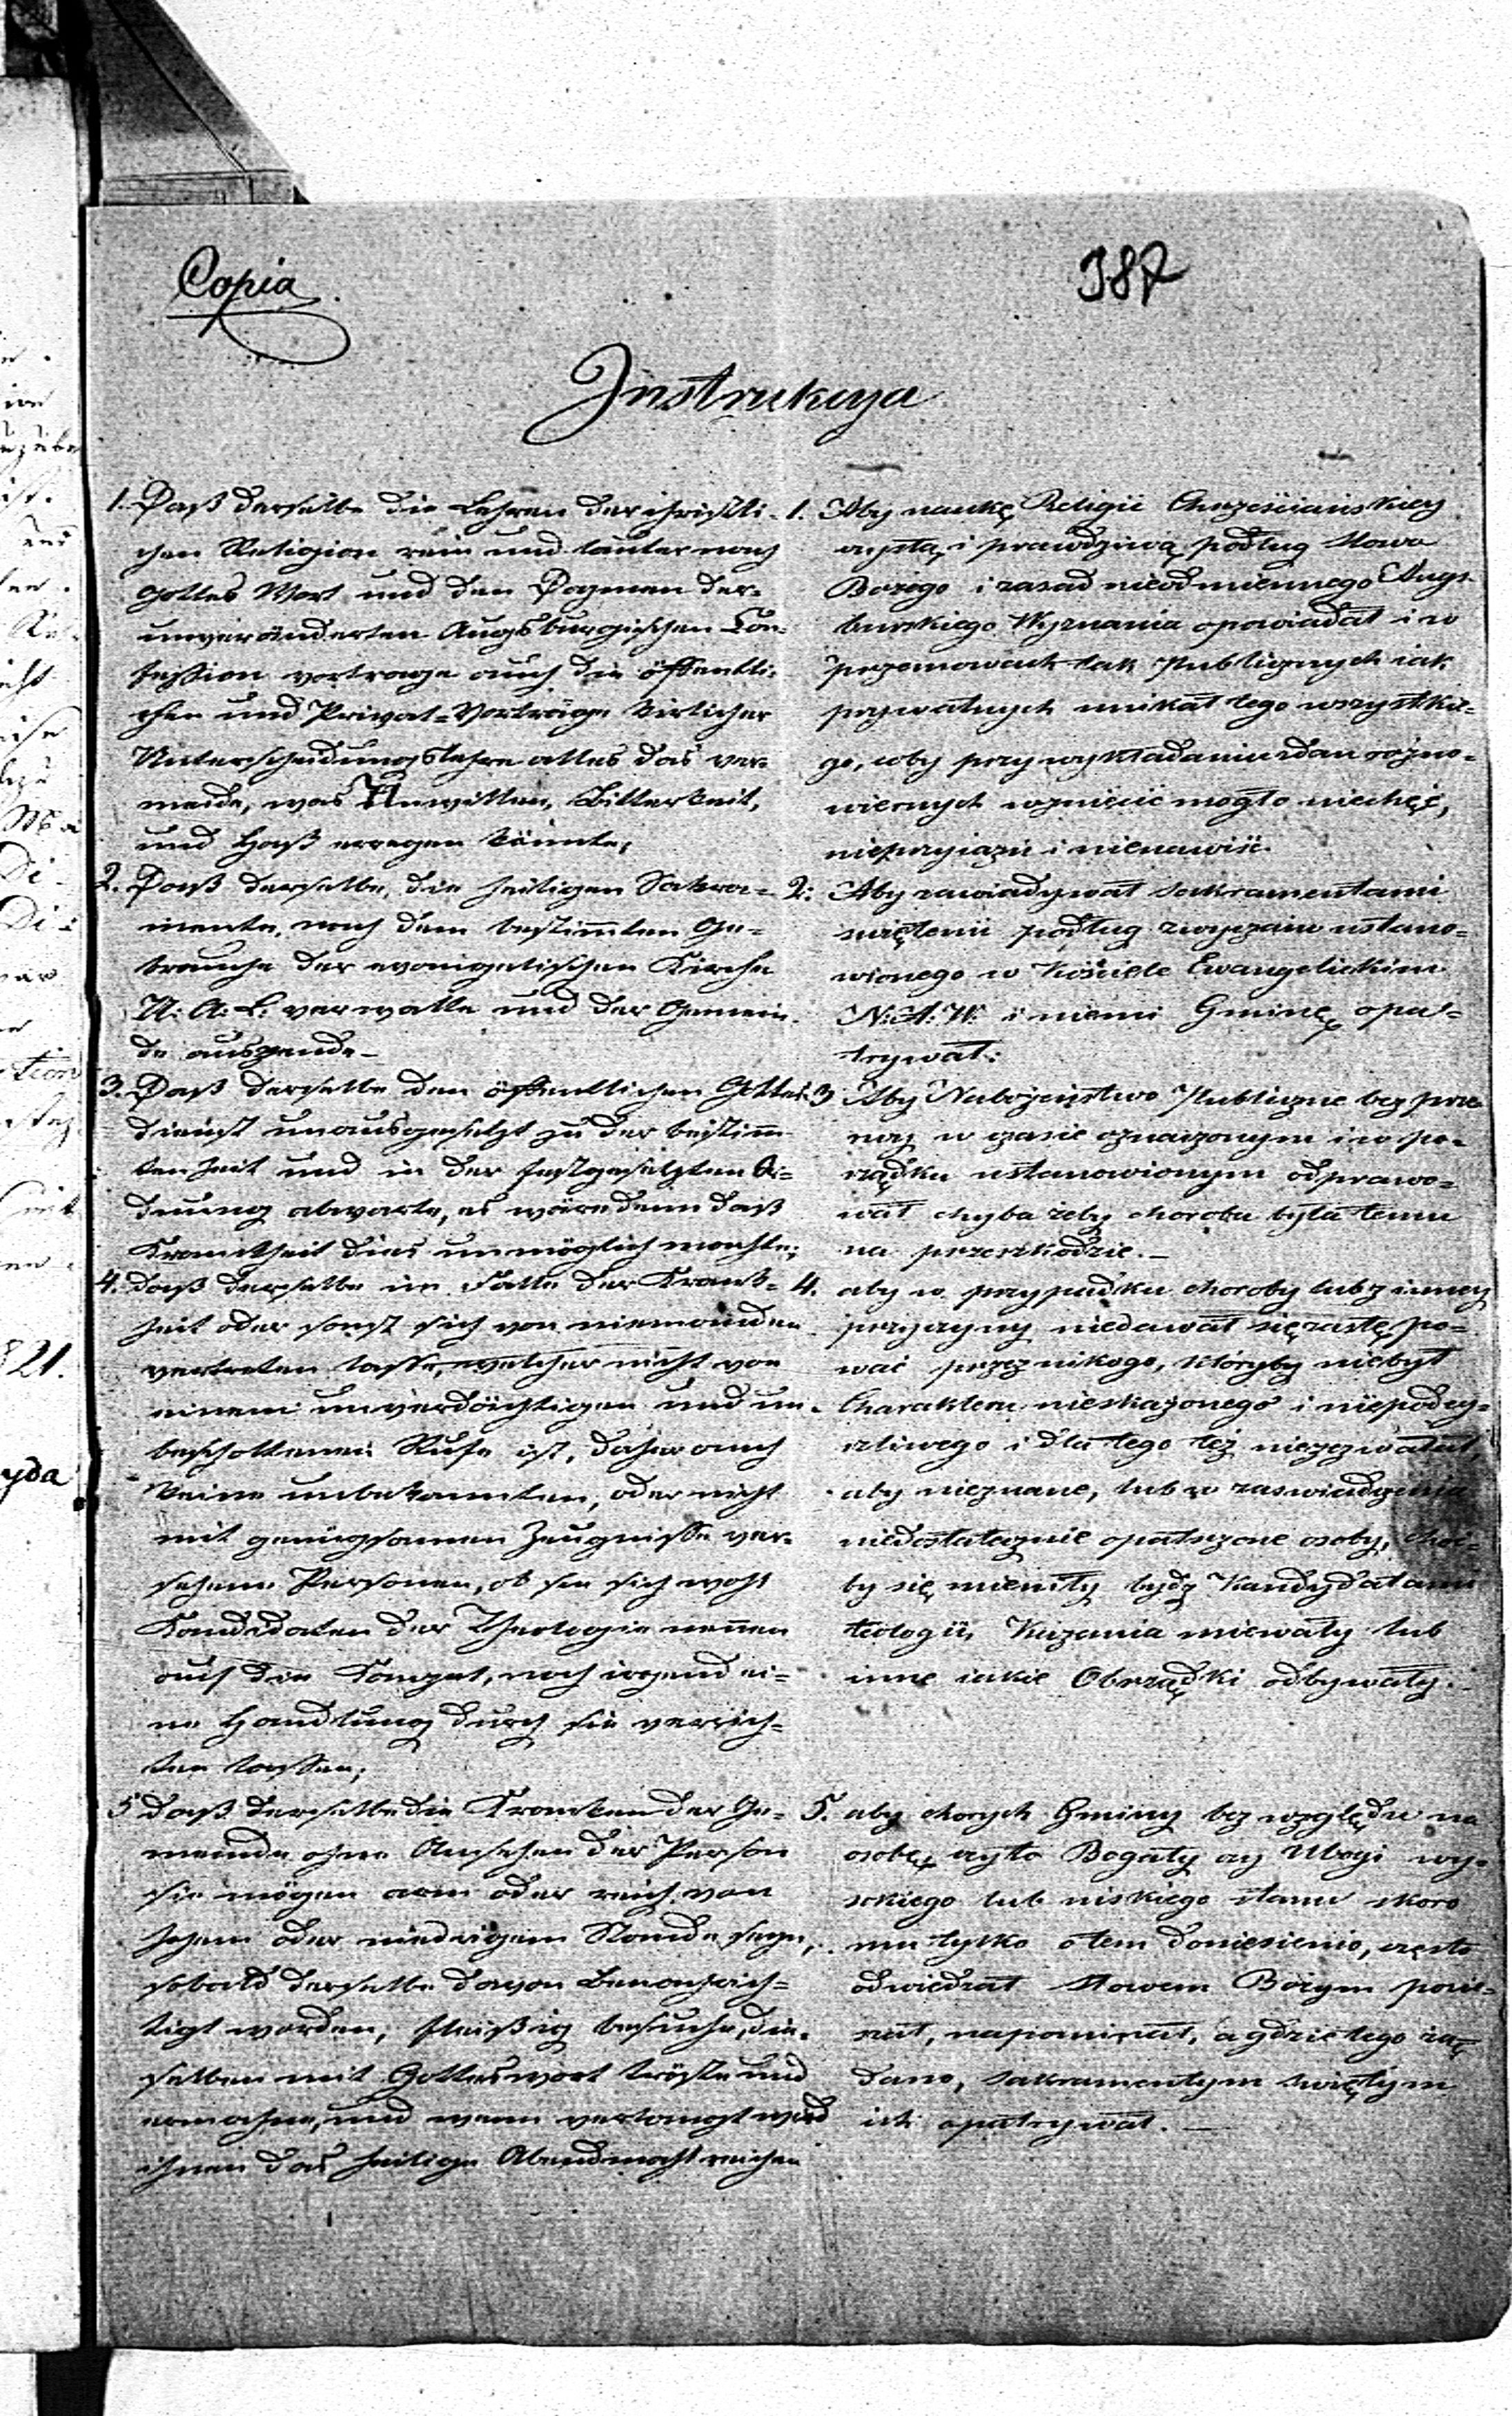 Copia
387
Instrukcya
1. Daß derselbe die Lehren der christli-
chen Religion rein und lauter nach
Gottes Wort und den Dogmen der
unveränderten Augsburgischen Con-
fession vortrage auch die öffentli-
chen und Privat-Vorträge
Unterscheidungslehre alles das ver-
meide, was Unwillen, Bitterkeit,
und Haß erregen könnte;
2. Daß derselbe, die heiligen Sakra-
mente, nach dem bestimmten Ge-
brauche der evangelischen Kirche
N: A: C: verwalte und der Gemein-
de ausspende
3. Daß derselbe den öffentlichen Gottes
dienst unausgesetzt zu der bestimm
ten Zeit und in der festgesetzten Or-
dnung abwarte, es wäre denn daß
Krankheit dies unmöglich machte;
4. daß derselbe im Falle der Krank-
heit oder sonst sich von niemanden
vertreten lasse, welcher nicht von
einem unverdächtigen und un-
bescholtenen Rufe ist, daher auch
keine unbekannten, oder nicht
mit genügsamen Zeugnisse ver-
sehene Personen, ob sie sich wohl
Kandidaten der Theologie nennen
auf die Kanzel, noch irgend ei-
ne Handlung durch sie verrich-
ten lassen;
5 daß derselbe die Kranken der Ge-
meinde ohne Ansehen der Person
sie mögen arm oder reich von
hohem oder niedrigem Stande seyn,
sobald derselbe davon benachrich-
tigt worden, fleißig besuche, die-
selben mit Gotteswort tröste und
ermahne, und wenn verlangt wird
ihnen das heilige Abendmahl reichen
1. Aby naukę Religii Chrześciańskiey
czystą i prawdziwą podług słowa
Bożego i zasad nieodmiennego Augs-
burskiego Wyznania opowiadał i w
przemowach tak Publicznych iak
prywatnych unikał tego wszystkie-
go, coby przy wykładaniu zdań różno-
wiernych wzniecić mogło niechęć,
nieprzyiaźń i nienawiść.
2: Aby zawiadywał sakramentami
świętemi podług zwyczaiu ustano-
wionego w Kościele Ewangelickim
N: A: W: i niemi Gminę opa-
trywał:
3 Aby Nabożeństwo Publiczne bez prze
rwy w czasie oznaczonym i w po-
rządku ustanowionym odprawo-
wał chyba żeby choroba była temu
na przeszkodzie.
4. aby w przypadku choroby lub z inney
przyczyny niedawał się zastępo-
wać przez nikogo, któryby niebył
Charakteru nieskażonego i niepodey-
rzliwego i dla tego też niezezwalał,
aby nieznane, lub w zaświadczenia
niedostatecznie opatrzone osoby, choć-
by się mieniły bydź Kandydatami
teologii, Kazania miewały lub
inne iakie Obrządki odbywały.
5. aby chorych Gminy bez względu na
osobę, czyto Bogaty czy Ubogi wy-
sokiego lub niskiego stanu skoro
mu tylko o tem doniesiono, często
odwiedzał słowem Bożym pocie-
szał, napominał, a gdzie tego żą
dano, sakramentym świętym
ich opatrywał.
821.
yda